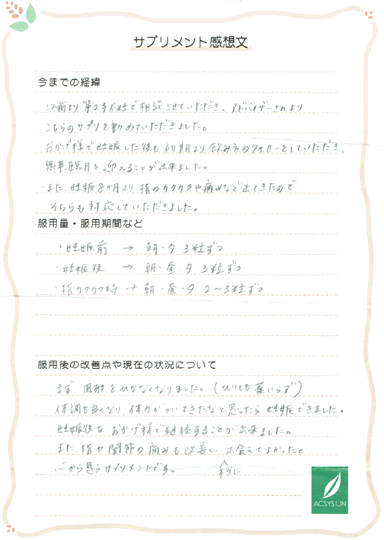 サプリメント感想文
今までの経緯
以前より第2子不妊で相談させていただき、アドバイザーさんより
こちらのサプリを勧めていただきました。
おかげ様で妊娠した後も初期より飲み方のフォローをしていただき、
無事臨月を迎えることが出来ました。
また、妊娠8ヶ月より指のカクカクや痛みなど出てきたので
そちらも対応していただきました。
服用量・服用期間など
・妊娠前 → 朝・夕 3粒ずつ
・妊娠後 → 朝・昼・夕 3粒ずつ
・指カクカク時 → 朝・昼・夕 2〜3粒ずつ
服用後の改善点や現在の状況について
まず、風邪をひかなくなりました。(ひいても薬いらず)
体調も良くなり、体力がついてきたなと思ったら妊娠できました。
妊娠後もおかげ様で継続することが出来ました。
また指や関節の痛みも改善し、出会えてよかったと
心から思うサプリメントです。
ACSYS UN